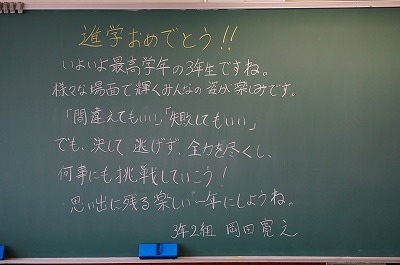 進学おめでとう!!
いよいよ最高学年の3年生ですね。
様々な場面で輝くみんなの姿が楽しみです。
「間違えてもいい」「失敗してもいい」
でも、決して逃げず、全力を尽くし、
何事にも挑戦していこう!
思い出に残る楽しい一年にしようね。
3年2組 岡田寛之